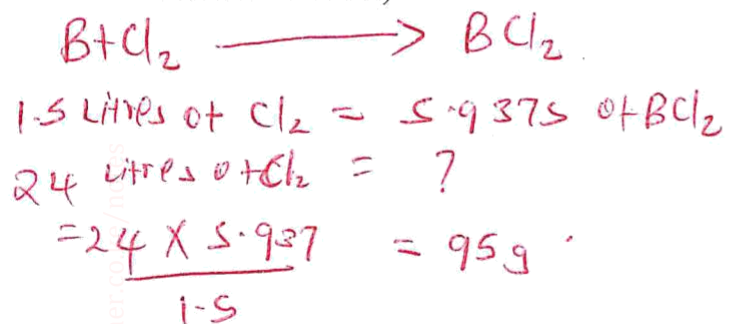 B+Cl₂ ⟶ BCl₂.
1.5 Litres of Cl₂ = 5.9375 of BCl₂
24 Litres of Cl₂ = ?
= 24 X 5.937 = 95g.
1.5